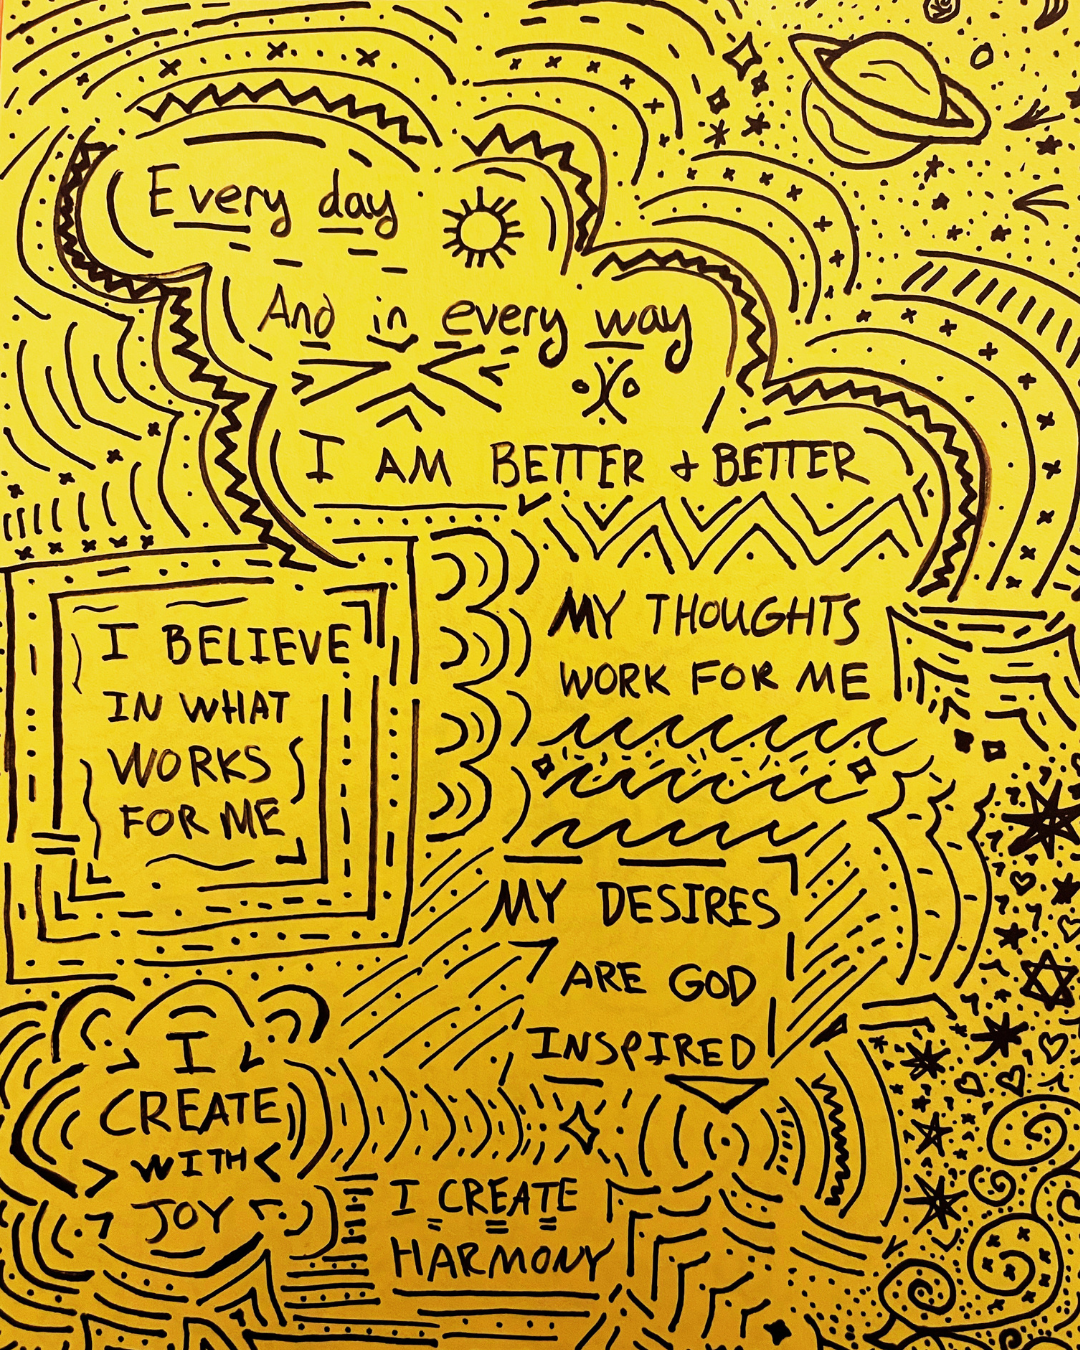 Every day
And in every way
I AM BETTER + BETTER
I BELIEVE
IN WHAT
WORKS
FOR ME
MY THOUGHTS
WORK FOR ME
MY DESIRES
ARE GOD
INSPIRED
I
CREATE
WITH
JOY
I CREATE
HARMONY